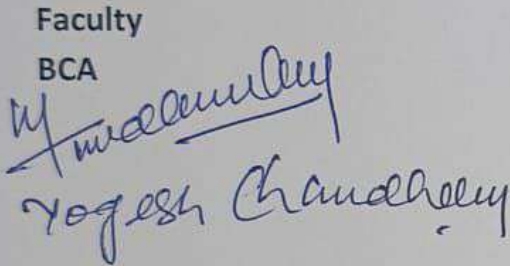 Faculty
BCA
Yogesh Chaudhary